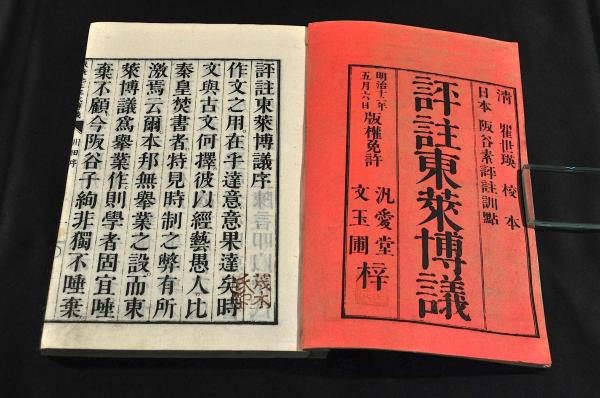 清 瞿世瑛 校本
日本 阪谷素評註訓點
評註東萊博議
明治十二年
五月六日
版權免許
汎愛堂
文玉圃
梓
評註東萊博議序
作文之用在乎達意意果達矣時
文與古文何擇彼以經藝愚人比
秦皇焚書者特見時制之弊有所
激焉云爾本邦無舉業之設而東
萊博議爲舉業作則學者固宜唾
棄不顧今阪谷子絢非獨不唾棄
川田序